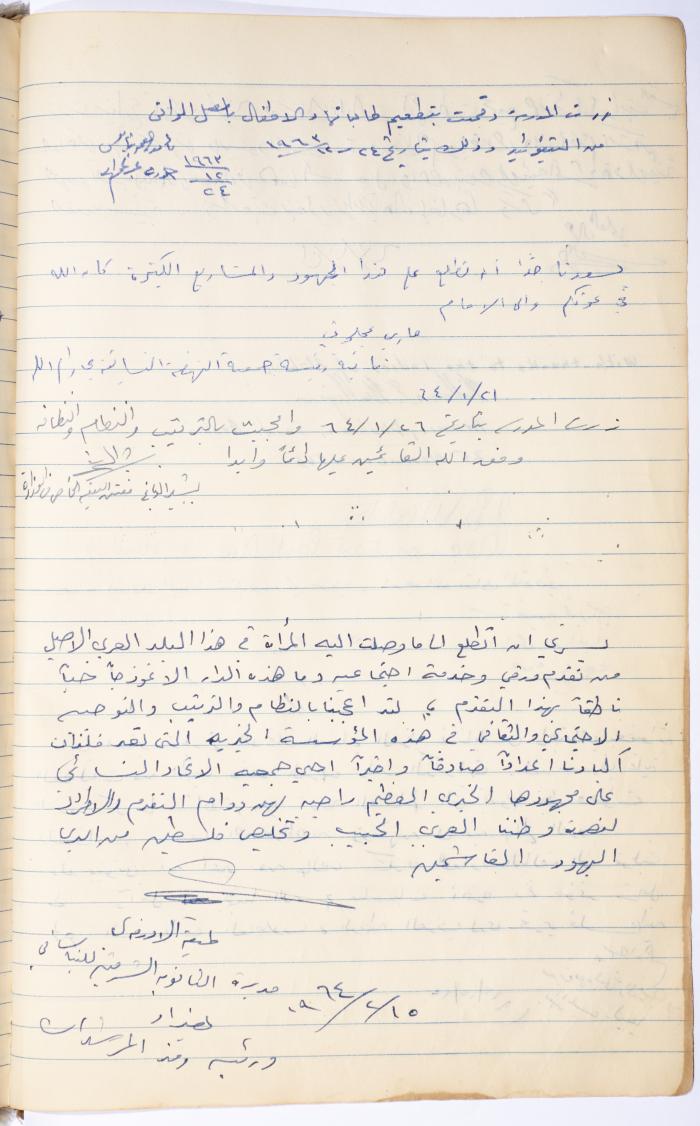 زرت المدرسة وقمت بتطعيم طالباتها والاطفال بالمصل الواقي
من التيفوئيد وذلك بتاريخ ٢٤-١٢-١٩٦٣
١٩٦٣
١٢
٢٤
يسعدنا جدا أن نطلع على هذا المجهود والمشاريع الكثيرة كان الله
في عونكم والى الامام
نائبة رئيسة جمعية النهضة النسائية برام الله
٦٤/١/٢١
زرت المدرسة بتاريخ ٦٤/١/٢٦ واعجبت بالترتيب والنظام والنظافة
وفق الله القائمين عليها دائماً وابدا
يسرني ان أتطلع الى ما وصلت اليه المرأة في هذا البلد العربي الاصيل
من تقدم ورقي وخدمة اجتماعية وما هذه الدار الا نموذجاً حياً
ناطقاً بهذا التقدم لقد اعجبنا بالنظام والترتيب والتوجيه
الاجتماعي والثقافي في هذه المؤسسة الخيريه التي تعد فلذات
أكبادنا اعداداً صادقاً واخيراً احيي جمعية الاتحاد النسائي
على مجهودها الخيري العظيم راجية لهن دوام التقدم والاطراد
لنصرة وطننا العربي الحبيب وتخليص فلسطين من ايدي
اليهود الغاشمين
مديرة الثانوية الشرقية للبنات في
بغداد
ورئيسة وفد المرشدات
١٥/٢/١٩٦٤